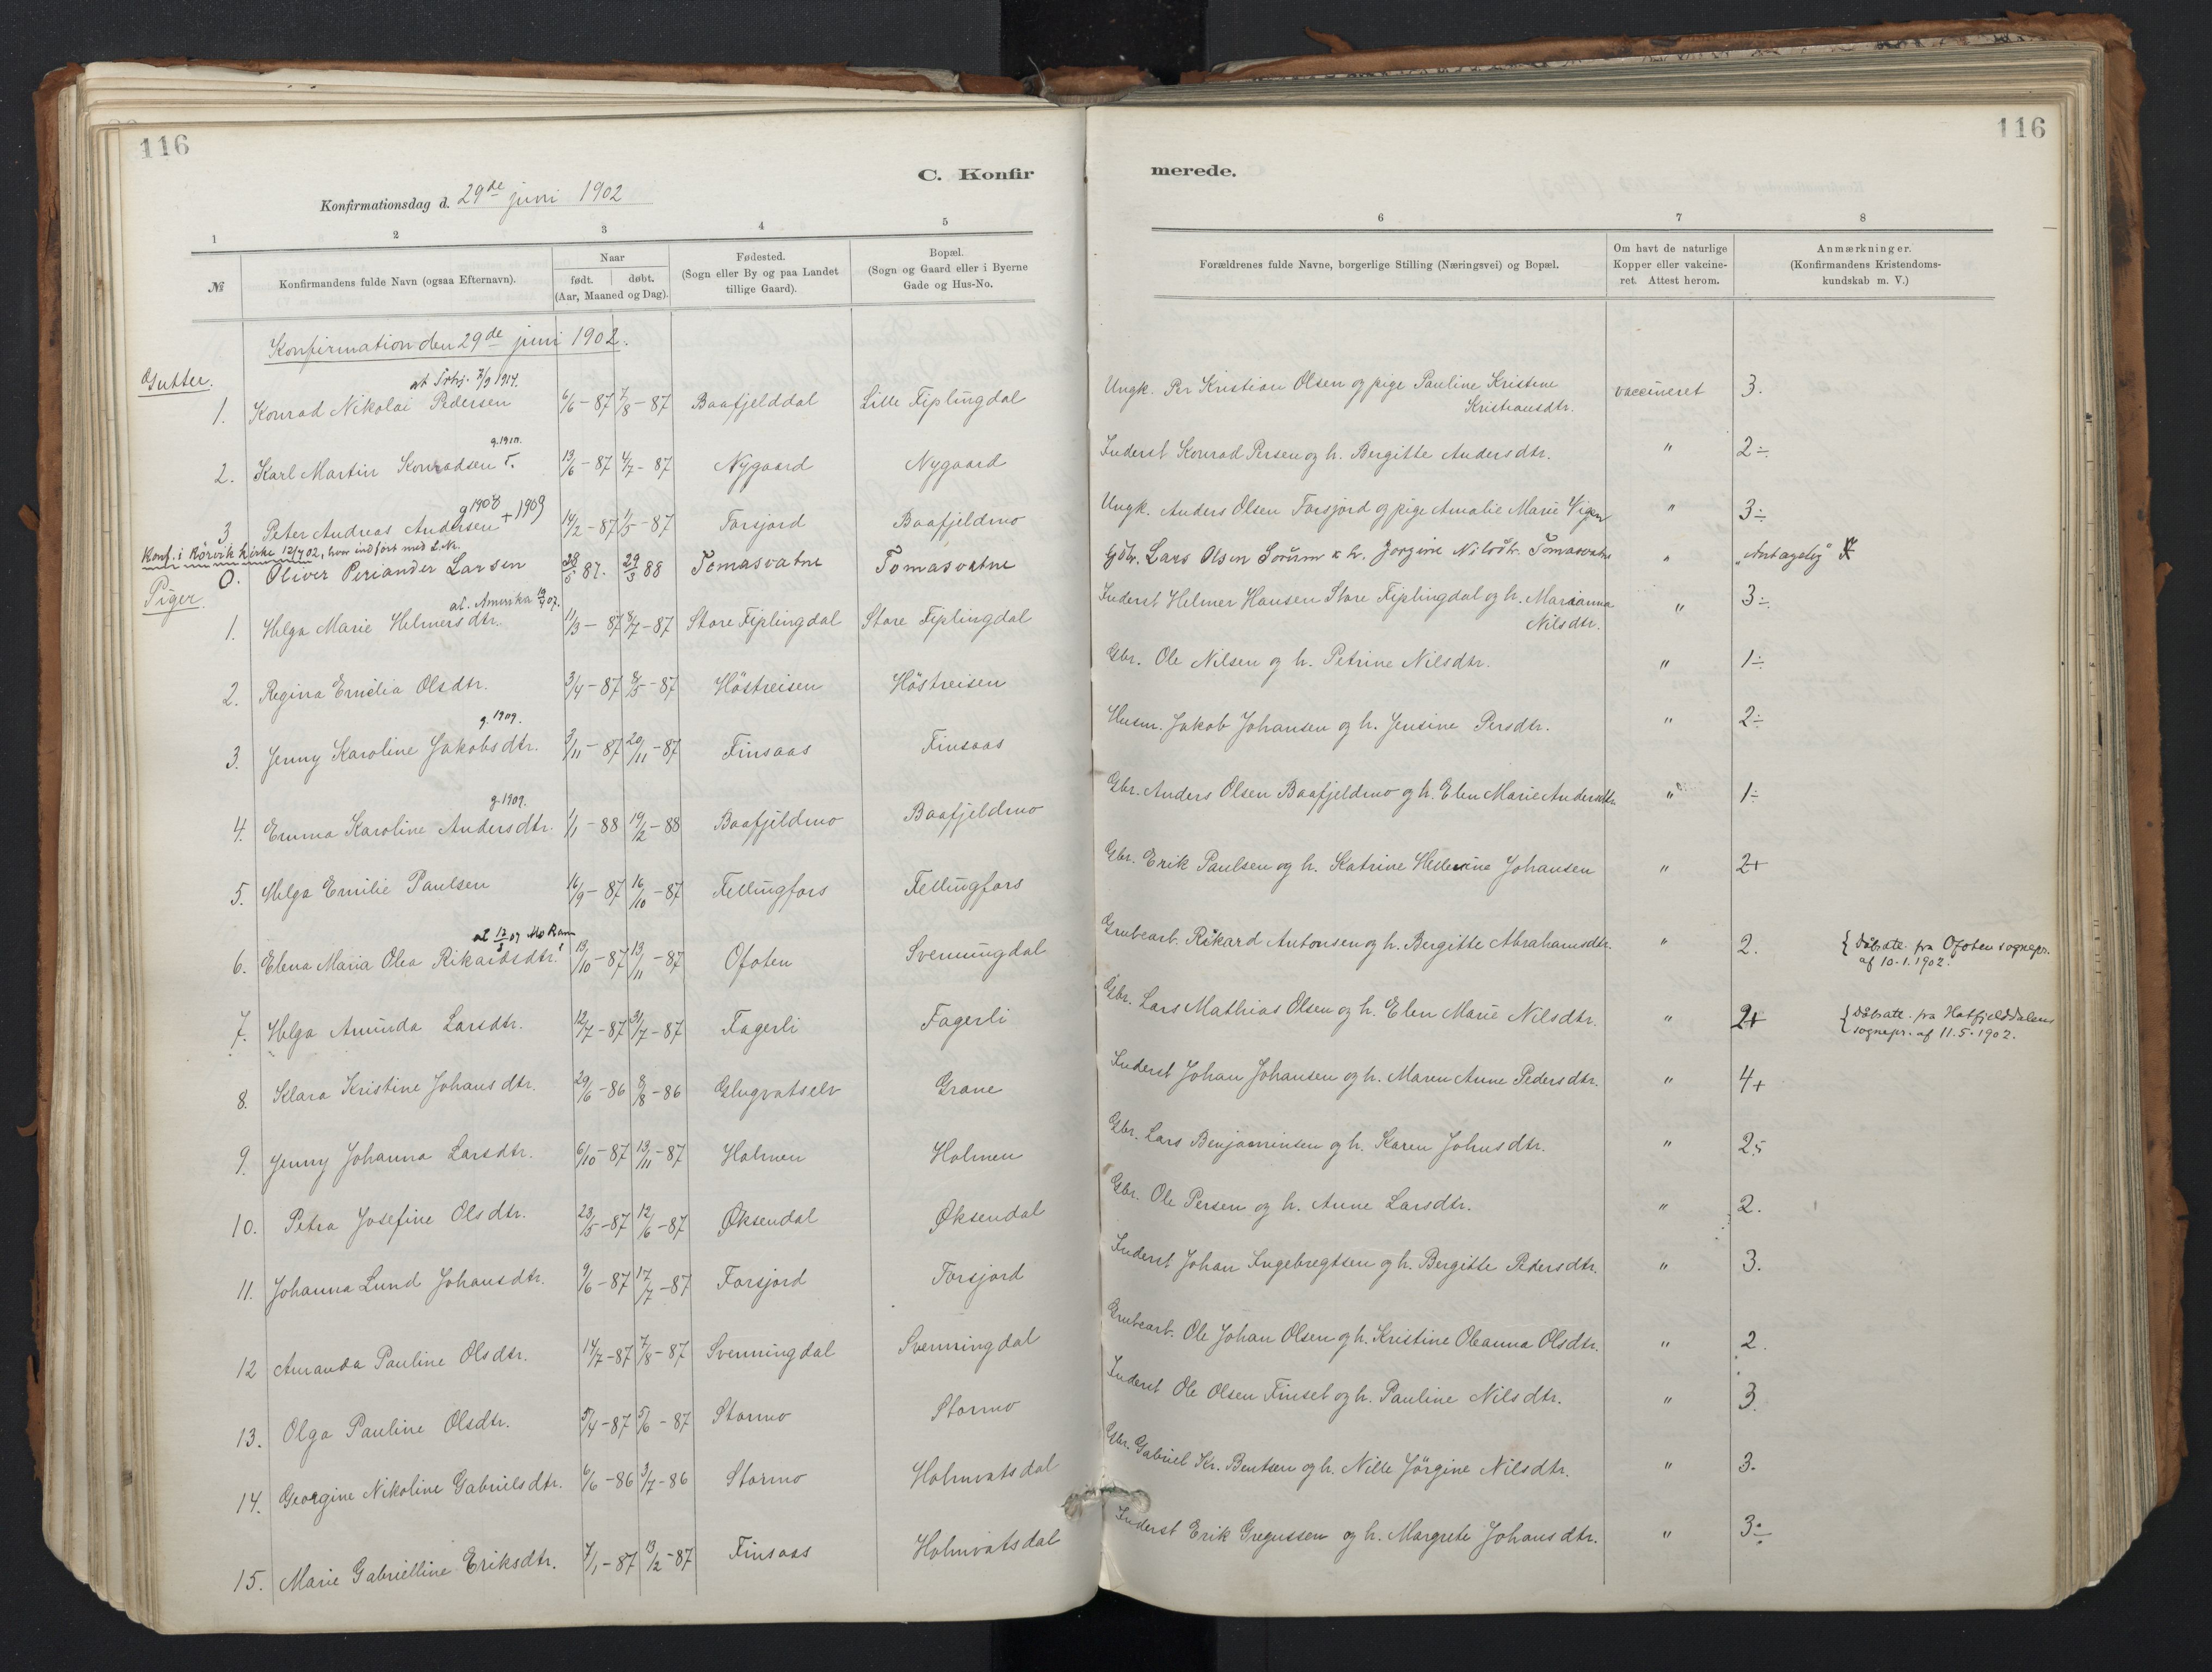 116
116
C. Konfir
merede.
Konfirmationsdag d. 29de juni 1902
1 2 3 4 5 6 7 8
№ Konfirmandens fulde Navn (ogsaa Efternavn). Naar født. døbt. (Aar, Maaned og Dag). Fødested. (Sogn eller By og paa Landet tillige Gaard). Bopæl. (Sogn og Gaard eller i Byerne Gade og Hus-No. Forældrenes fulde Navne, borgerlige Stilling (Næringsvei) og Bopæl. Om havt de naturlige Kopper eller vakcineret. Attest herom. Anmærkninger. (Konfirmandens Kristendomskundskab m. V.)
Konfirmation den 29de juni 1902.
Gutter.
1. Konrad Nikolai Pedersen 6/6-87 7/8-87 Baafjelddal Lille Fiplingdal Ungk. Per Kristian Olsen og pige Pauline Kristine Kristiansdtr. vaccineret 3.
g. 1910.
2. Karl Martin Konradsen 13/6-87 4/7-87 Nygaard Nygaard Inderst Konrad Persen og h. Bergitte Andersdtr. " 2÷
g 1908 + 1909
3. Peter Andreas Andersen 14/2-87 1/5-87 Forsjord Baafjeldmo Ungk. Anders Olsen Forsjord og pige Amalie Marie Vigen " 3÷
Konf. i Rörvik kirke 12/7 02, hvor indført med L.Nr.
0. Oliver Periander Larsen 28/5 87. 29/3 88 Tomasvatne Tomasvatne Lars Olsen Sorum & h. Jorgine Nilsdtr. Tomasvatne " "Antagelig"
Piger
at. Amerika 19/4 07.
1. Helga Marie Helmersdtr. 11/3-87 3/7-87 Store Fiplingdal Store Fiplingdal Inderst Helmer Hansen Store Fiplingdal og h. Marianna Nilsdtr. " 3÷
2. Regina Emelia Olsdtr. 3/4-87 8/5-87 Höstreisen Höstreisen Gbr. Ole Nilsen og h. Petrine Nilsdtr. " 1÷
g. 1909.
3. Jenny Karoline Jakobsdtr. 3/11-87 20/11-87 Finsaas Finsaas Husm. Jakob Johansen og h. Jensine Persdtr. " 2÷
g. 1909.
4. Emma Karoline Andersdtr. 1/1-88 19/2-88 Baafjeldmo Baafjeldmo Gbr. Anders Olsen Baafjeldmo og h. Elen Marie Andersdtr. " 1÷
5. Helga Emilie Paulsen 16/9-87 16/10-87 Fellingfors Fellingfors Gbr. Erik Paulsen og h. Katrine Johansen " 2+
6. Elena Maria Olea Rikardsdtr. 13/10-87 13/11-87 Ofoten Svenningdal Grubearb. Rikard Antonsen og h. Bergitte Abrahamsdtr. " 2. Dåbsatt. fra Ofoten sognepr. af 10-1.1902.
7. Helga Aminda Larsdtr. 12/7-87 31/7-87 Fagerli Fagerli Gbr. Lars Mathias Olsen og h. Elen Marie Nilsdtr. " 2+ Dåbsatt. fra Hatfjelddalens sognepr. af 11.5.1902.
8. Klara Kristine Johansdtr. 29/6-86 8/8-86 Glugvatselv Grane Inderst Johan Johansen og h. Maren Anne Pedersdtr. " 4+
9. Jenny Johanna Larsdtr. 6/10-87 13/11-87 Holmen Holmen Gbr. Lars Benjaminsen og h. Karen Johnsdtr. " 2÷
10. Petra Josefine Olsdtr. 23/5-87 12/6-87 Øksendal Øksendal Gbr. Ole Persen og h. Anne Larsdtr. " 2.
11. Johanna Lund Johansdtr. 9/6-87 17/7-87 Forsjord Forsjord Inderst Johan Ingebregtsen og h. Bergitte Pedersdtr. " 3.
12 Amanda Pauline Olsdtr. 14/7-87 7/8-87 Svenningdal Svenningdal Grubearb. Ole Johan Olsen og h. Kristine Oleanna Olsdtr. " 2.
13. Olga Pauline Olsdtr. 5/4-87 5/6-87 Stormo Stormo Inderst Ole Olsen Finset og h. Pauline Nilsdtr. " 3.
14. Georgine Nikoline Gabrielsdtr. 6/6-86 3/7-86 Stormo Holmvatsdal Gbr. Gabriel Kr. Bentsen og h. Nille Jörgine Nilsdtr. " 3.
15. Marie Gabrielline Eriksdtr. 7/1-87 13/2-87 Finsaas Holmvatsdal Inderst Erik Gregussen og h. Margrete Johansdtr. " 3÷